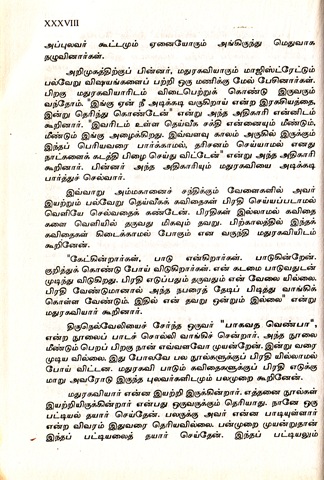 XXXVIII
அப்புலவர் கூட்டமும் ஏனையோரும் அங்கிருந்து மெதுவாக
நழுவினார்கள்.
அறிமுகத்திற்குப் பின்னர், மதுரகவியாரும் மாஜிஸ்ட்ரேட்டும்
பல்வேறு விஷயங்களைப் பற்றி ஒரு மணிக்கு மேல் பேசினார்கள்.
பிறகு மதுரகவியாரிடம் விடைபெற்றுக் கொண்டு இருவரும்
வந்தோம். "இங்கு ஏன் நீ அடிக்கடி வருகிறாய் என்ற இரகசியத்தை,
இன்று தெரிந்து கொண்டேன்" என்று அந்த அதிகாரி என்னிடம்
கூறினார். "இவரிடம் உள்ள தெய்வீக சக்தி என்னையும் மீண்டும்,
மீண்டும் இங்கு அழைக்கிறது. இவ்வளவு காலம் அருகில் இருக்கும்
இந்தப் பெரியவரை பார்க்காமல், தரிசனம் செய்யாமல் எனது
நாட்களைக் கடத்தி பிழை செய்து விட்டேன்" என்று அந்த அதிகாரி
கூறினார். பின்னர் அந்த அதிகாரியும் மதுரகவியை அடிக்கடி
பார்த்துச் செல்வார்.
இவ்வாறு அம்மகானைச் சந்திக்கும் வேளைகளில் அவர்
இயற்றும் பல்வேறு தெய்வீகக் கவிதைகள் பிரதி செய்யப்படாமல்
வெளியே செல்வதைக் கண்டேன். பிரதிகள் இல்லாமல் கவிதை
களை வெளியில் தருவது மிகவும் தவறு. பிற்காலத்தில் இந்தக்
கவிதைகள் கிடைக்காமல் போகும் என வருந்தி மதுரகவியிடம்
கூறினேன்.
"கேட்கின்றார்கள், பாடு என்கிறார்கள். பாடுகின்றேன்.
குறித்துக் கொண்டு போய் விடுகிறார்கள். என் கடமை பாடுவதுடன்
முடிந்து விடுகிறது. பிரதி எடுப்பதும் தருவதும் என் வேலை யில்லை.
பிரதி வேண்டுமானால் அந்த நபரைத் தேடிப் பிடித்து வாங்கிக்
கொள்ள வேண்டும். இதில் என் தவறு ஒன்றும் இல்லை" என்று
மதுரகவியார் கூறினார்.
திருநெல்வேலியைச் சேர்ந்த ஒருவர் "பாகவத வெண்பா"
என்ற நூலைப் பாடச் சொல்லி வாங்கிச் சென்றார். அந்த நூலை
மீண்டும் பெறப் பிறகு நான் எவ்வளவோ முயன்றேன். இன்று வரை
முடிய வில்லை. இது போலவே பல நூல்களுக்குப் பிரதி யில்லாமல்
போய் விட்டன. மதுரகவி பாடும் கவிதைகளுக்குப் பிரதி எடுக்கு
மாறு அவரோடு இருந்த புலவர்களிடமும் பலமுறை கூறினேன்.
மதுரகவியார் என்ன இயற்றி இருக்கிறார். எத்தனை நூல்கள்
இயற்றியிருக்கின்றார் என்பது ஒருவருக்கும் தெரியாது. நானே ஒரு
பட்டியல் தயார் செய்தேன். பலருக்கு அவர் என்ன பாடியுள்ளார்
என்ற விவரம் இதுவரை தெரியவில்லை. பன்முறை முயன்றுதான்
இந்தப் பட்டியலைத் தயார் செய்தேன். இந்தப் பட்டியலும்